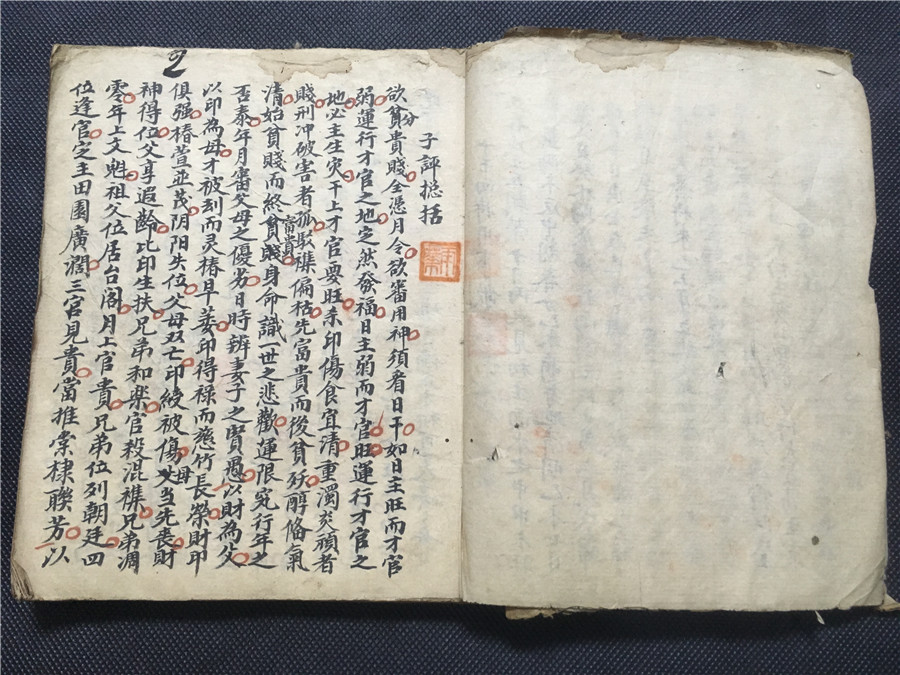 子評揔括
欲分貧貴賤全憑月令欲審用神須看日干如日主旺而才官
弱運行才官之地定然發福日主弱而才官旺運行才官之
地必主生灾干上才官要旺柔印傷食宜清重濁炎頑者
賤刑冲破害者孤駁襍偏枯先富貴而後貧殀醇俻氣
清始貧賤而終富貴貧賤身命識一世之悲歡運限究行年之
否泰年月審父母之優劣日時辨妻子之賢愚以財為父
以印為母才被刦而灵椿早萎印得祿而慈竹長榮財印
俱强椿萱並茂阴阳失位父母双亡印綬被傷母当先喪財
神得位父享遐齡比印生扶兄弟和樂官殺混襍兄弟凋
零年上文魁祖父位居台阁月上官貴兄弟位列朝廷四
位逢官定主田園廣濶三宫見貴當推棠棣聯芳以
2